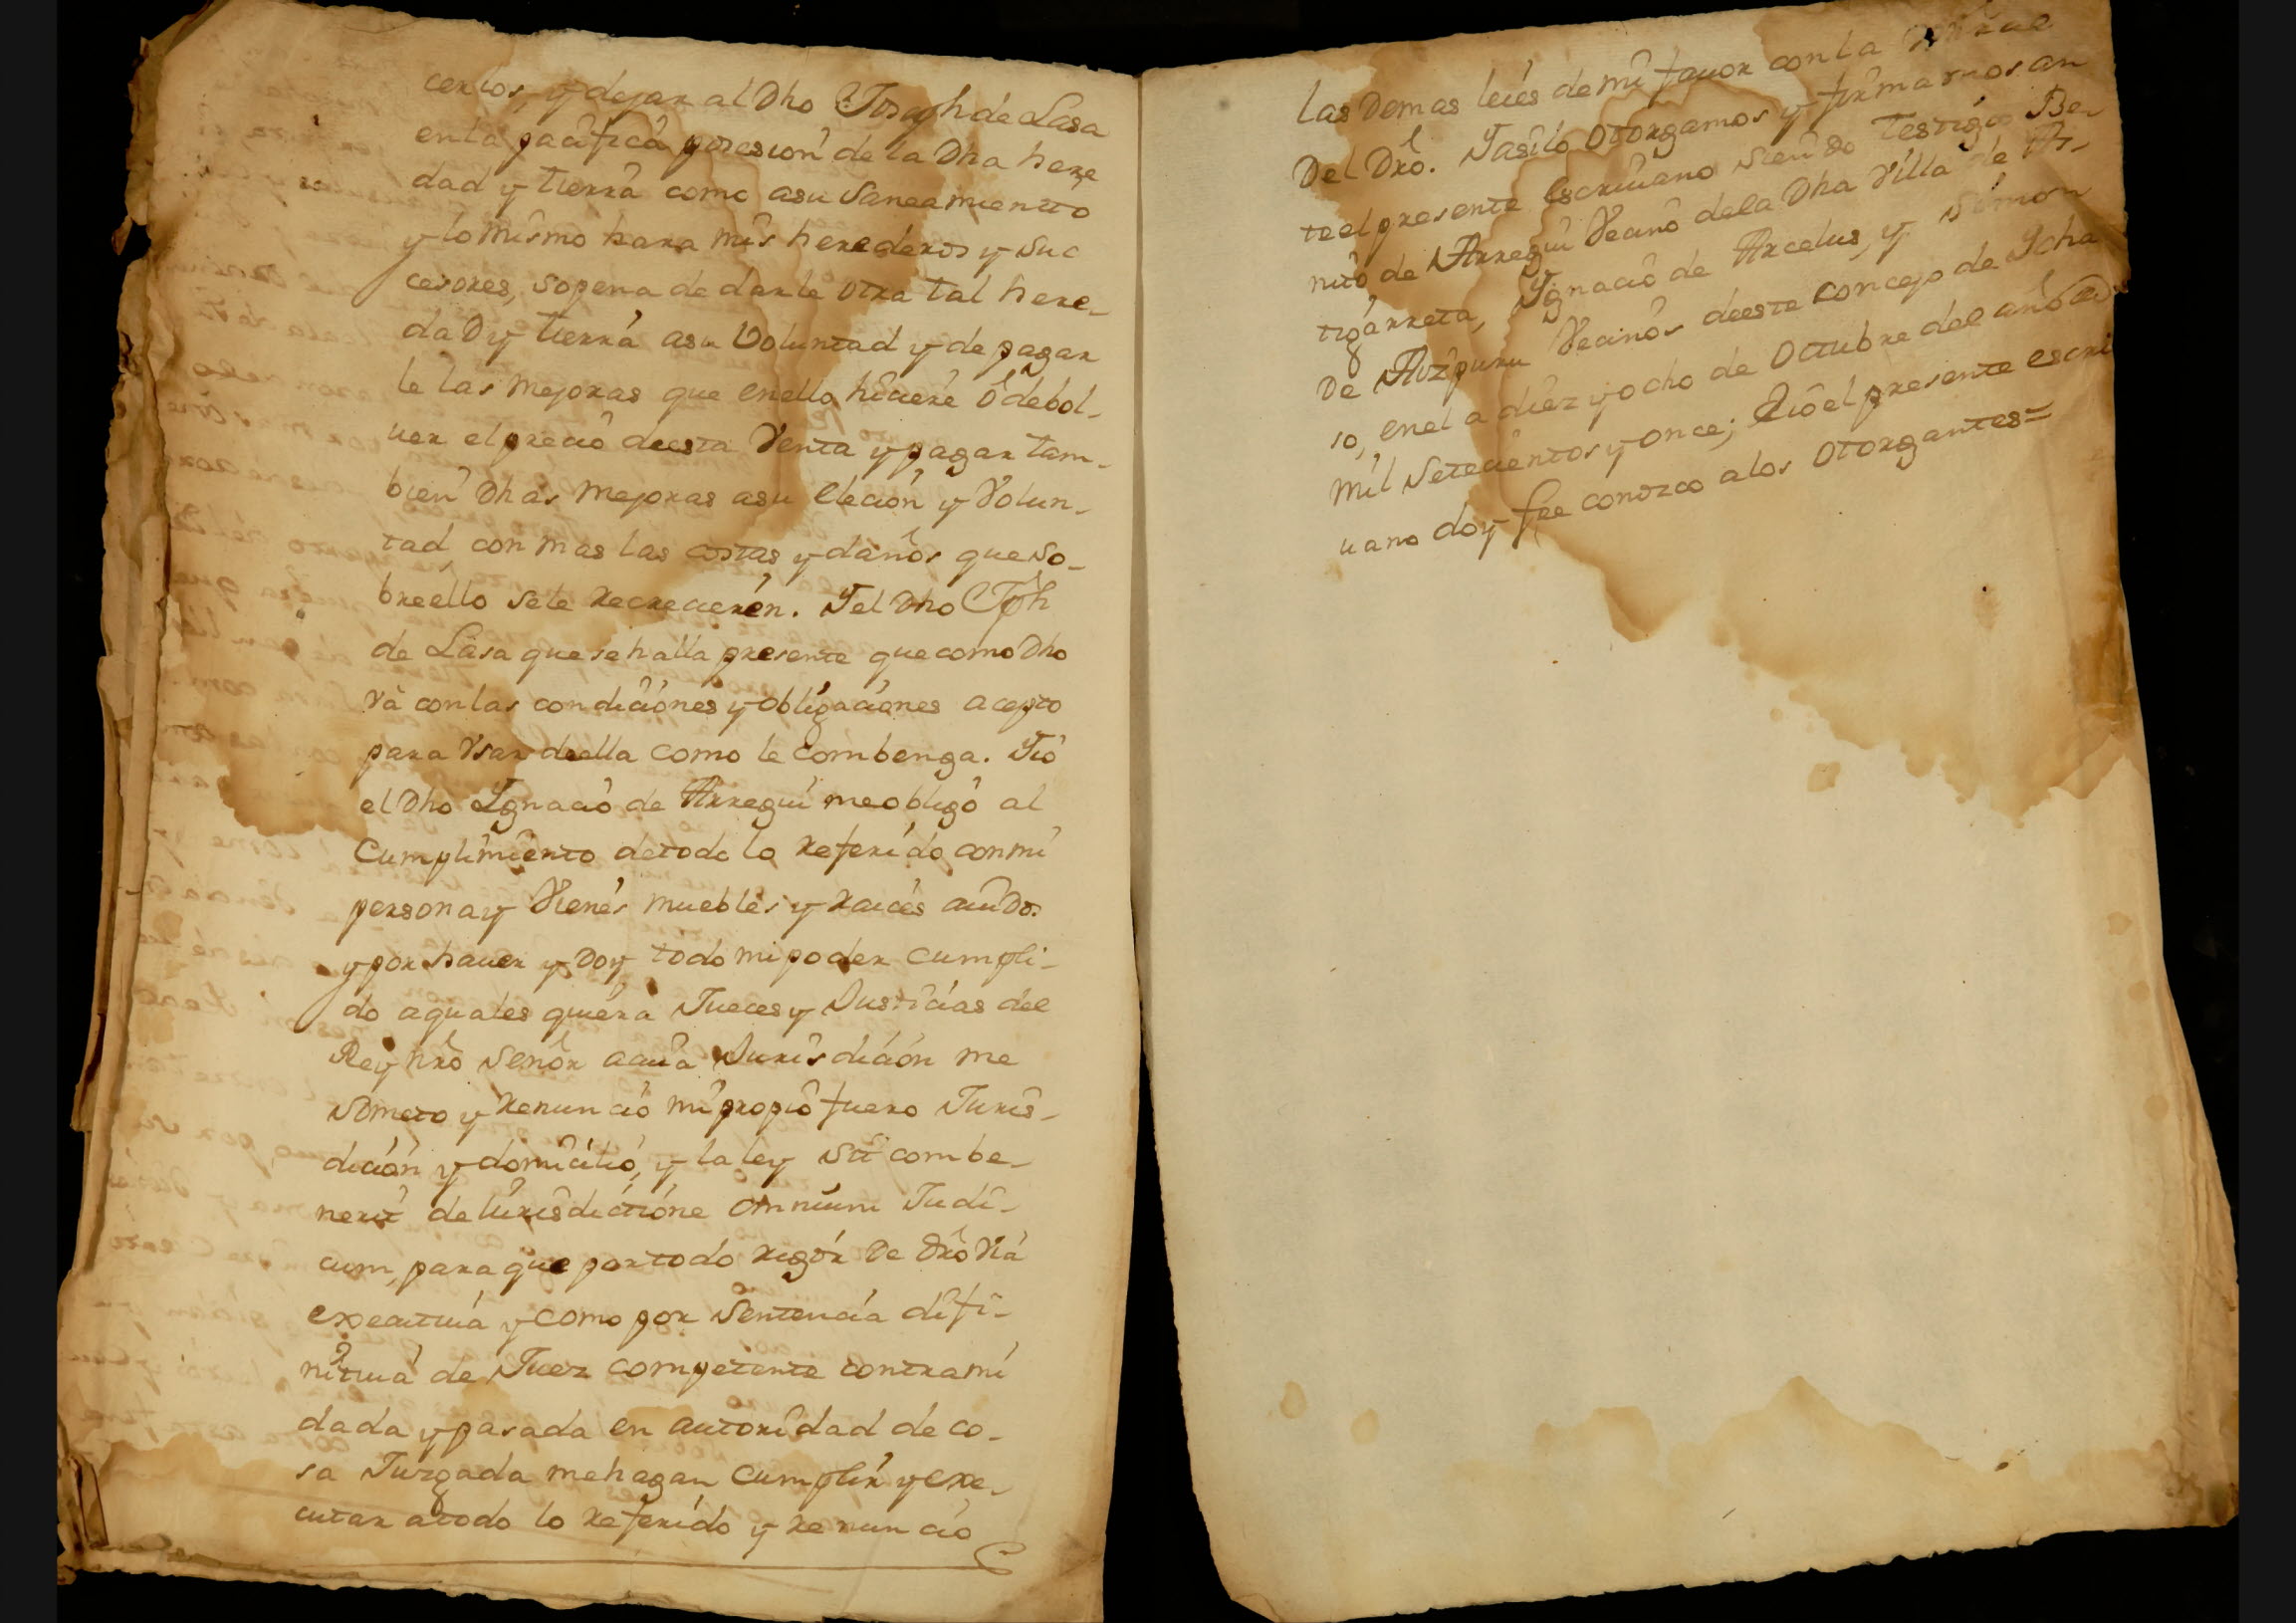 cerlos, y dejar al Dho Joseph de Lasa
en la pacifica posesion de la Dha here
dad y tierra como asu Saneamiento
y lo mismo hara mis herederos y suc
cesores, sopena de darle otra tal here-
dad y tierra asu Voluntad y de pagar
le las Mejoras que enello hiciere ô debol-
uer el precio deesta Venta y pagar tam-
bien Dhas Mejoras asu elecion y Volun-
tad con mas las costas y daños que so-
breello sele recrecieren. Y el Dho Jph
de Lasa que se halla presente que como Dho
Và con las condiciones y obligaciones acepto
para Vsar deella como le combenga. Yio
el Dho Ygnacio de Arregui me obligo al
Cumplimiento detodo lo referido con mi
persona y Vienes muebles y raices auidos
y por hauer y Doy todo mi poder cumpli-
do aquales quiera Jueces y Justicias del
Rey nrô Señor acuia Jurisdicion me
someto y renuncio mi propio fuero Juris-
dicion y domicilio, y la ley Sit combe-
nerit de lurisdictione omnium Judi-
cum, para que por todo rigor De drô Via
executiua y como por Sentencia difi-
nitiua de Juez competente contrami
dada y pasada en autoridad de co-
sa Juzgada mehagan cumplir y exe-
cutar atodo lo referido y renuncio
las Demas leies demi fauor con la
Del Drô. Yasilo Otorgamos y firmamos an
te el presente Escriuano siendo Testigos Be-
nito de Arregui Vecino dela Dha Villa de Ar-
tigarreta, Ygnacio de Arcelus, y Simon
De Aozpuru Vecinos deeste Concejo de Ycha
so, enel a diez y ocho de Octubre del año de
mil Setecientos y once; Eio el presente escri
uano doy fee conozco alos Otorgantes=